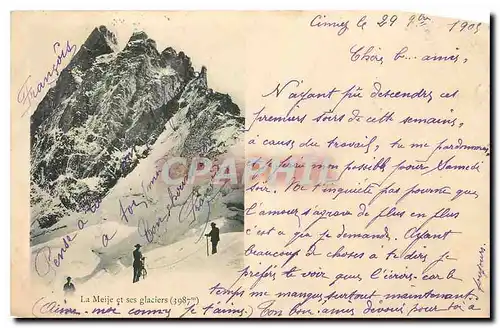 Cimiez le 29 9bre 1903
Chère b... amie,
N'ayant pu descendre ces
premiers soirs de cette semaine,
à cause du travail, tu me pardonneras
possible pour Samedi
soir. Ne t'inquiète pas pourvu que
l'amour s'agrave de plus en plus
c'est ce que je demande. Ayant
beaucoup de choses à te dire je
préfère te voir que l'écrire car le
temps me manque surtout maintenant.
Ton bon ami dévoué pour toi à
toujours
François
Pense à
à toi
ton
CPA PARIS
La Meije et ses glaciers (3987m)
(Aime-moi comme je t'aime)